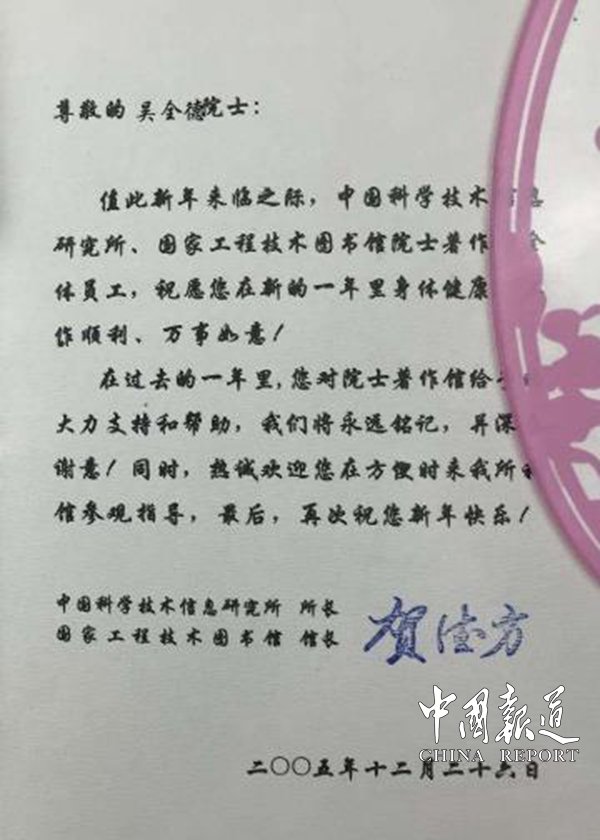 尊敬的 吴全德院士：
值此新年来临之际，中国科学技术信息
研究所、国家工程技术图书馆院士著作 全
体员工，祝愿您在新的一年里身体健康
作顺利、万事如意！
在过去的一年里,您对院士著作馆给
大力支持和帮助，我们将永远铭记，并深
谢意！同时，热诚欢迎您在方便时来我所和
馆参观指导，最后，再次祝您新年快乐！
中国科学技术信息研究所 所长
国家工程技术图书馆 馆长
贺德方
中国报道
CHINA REPORT
二〇〇五年十二月二十六日